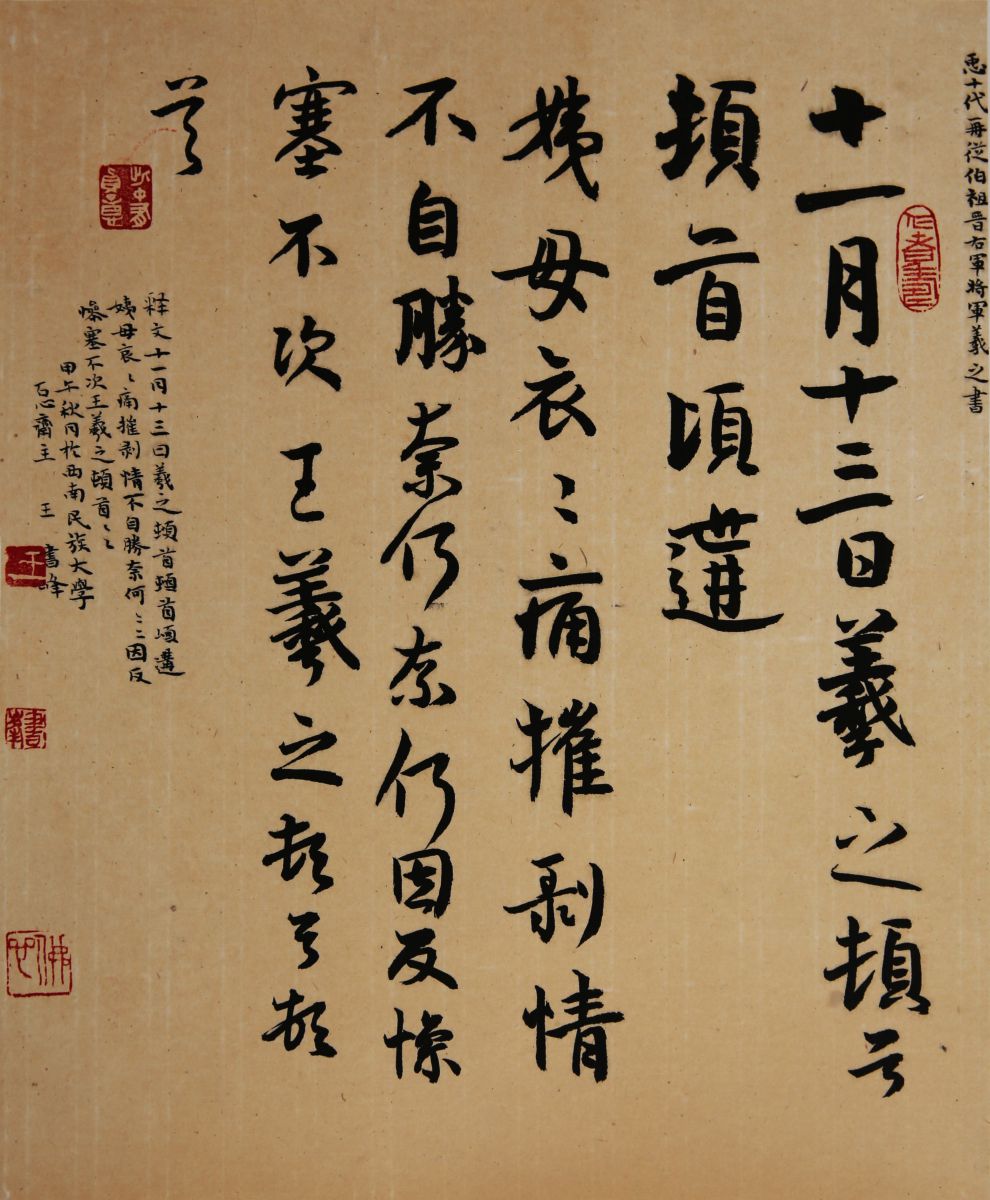 臣十代再從伯祖晉右軍將軍羲之書
十一月十三日羲之頓首
頓首頃遘
姨母哀〻痛摧剥情
不自勝奈何奈何因反慘
塞不次王羲之頓首頓
首
释文十一月十三日羲之頓首頓首頃遘
姨母哀〻痛摧剥情不自勝奈何〻〻因反
慘塞不次王羲之頓首〻〻
甲午秋月於西南民族大學
齋主 王書峰